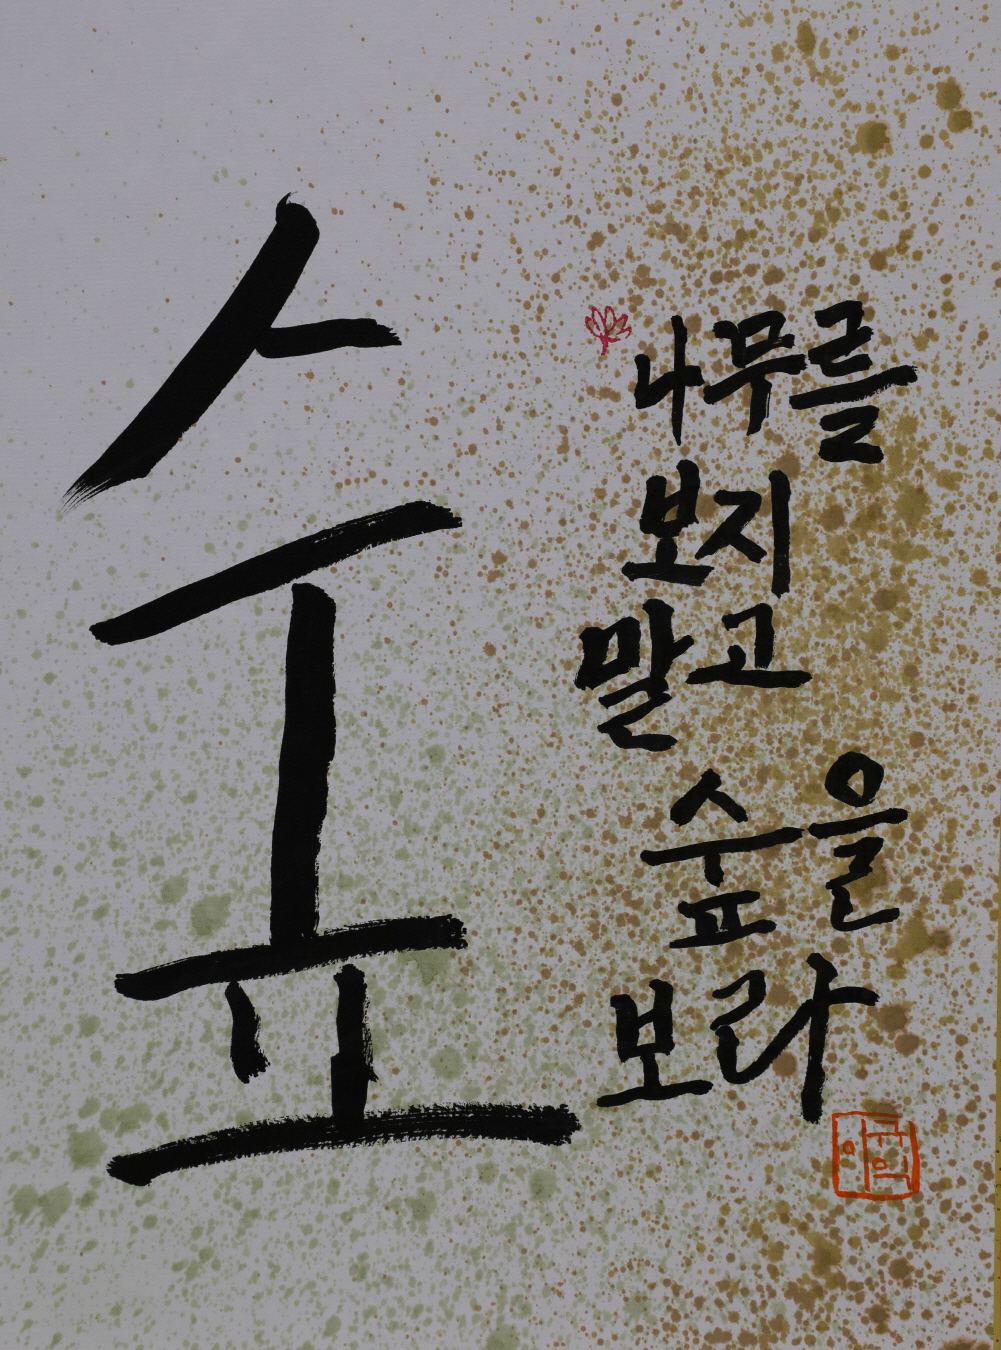 숲
나무를
보지
말고
숲을
보라